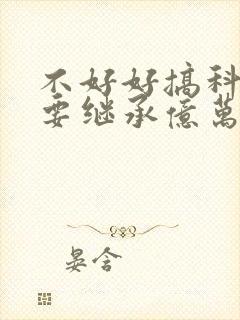 不好好搞科
要继承億萬
晏含